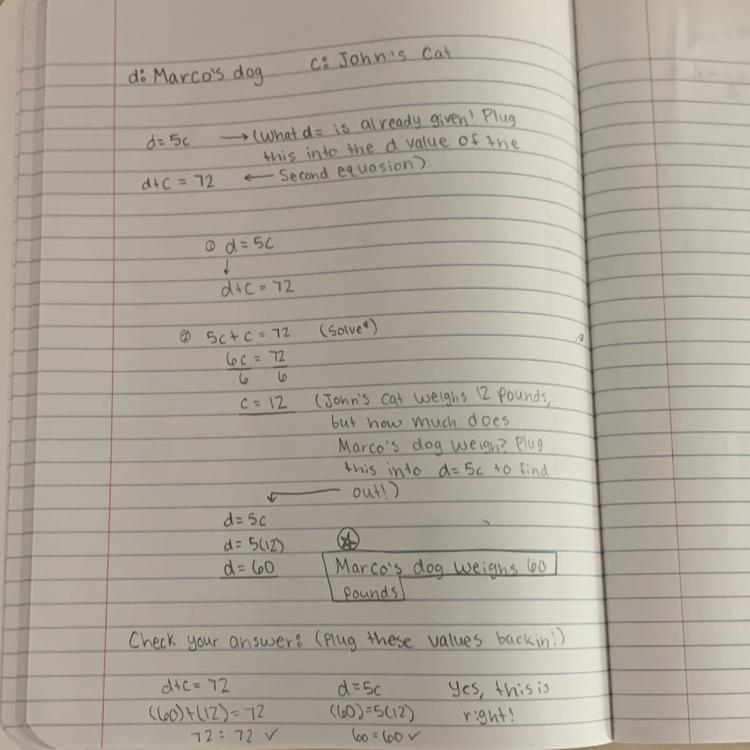 d: Marco's dog    c: John's cat
d = 5c → (What d = is already given! Plug
this into the d value of the
d+c = 72 ← second equasion)
① d = 5c
↓
d+c = 72
② 5c + c = 72 (solve*)
6c = 72
6 6
c = 12 (John's cat weighs 12 pounds,
but how much does
Marco's dog weigh? Plug
this into d = 5c to find
out!)
d = 5c
d = 5(12)
d = 60 Marco's dog weighs 60
pounds
Check your answer: (Plug these values back in!)
d+c = 72    d = 5c    Yes, this is
(60)+(12) = 72    (60) = 5(12)    right!
72 = 72 ✓    60 = 60 ✓